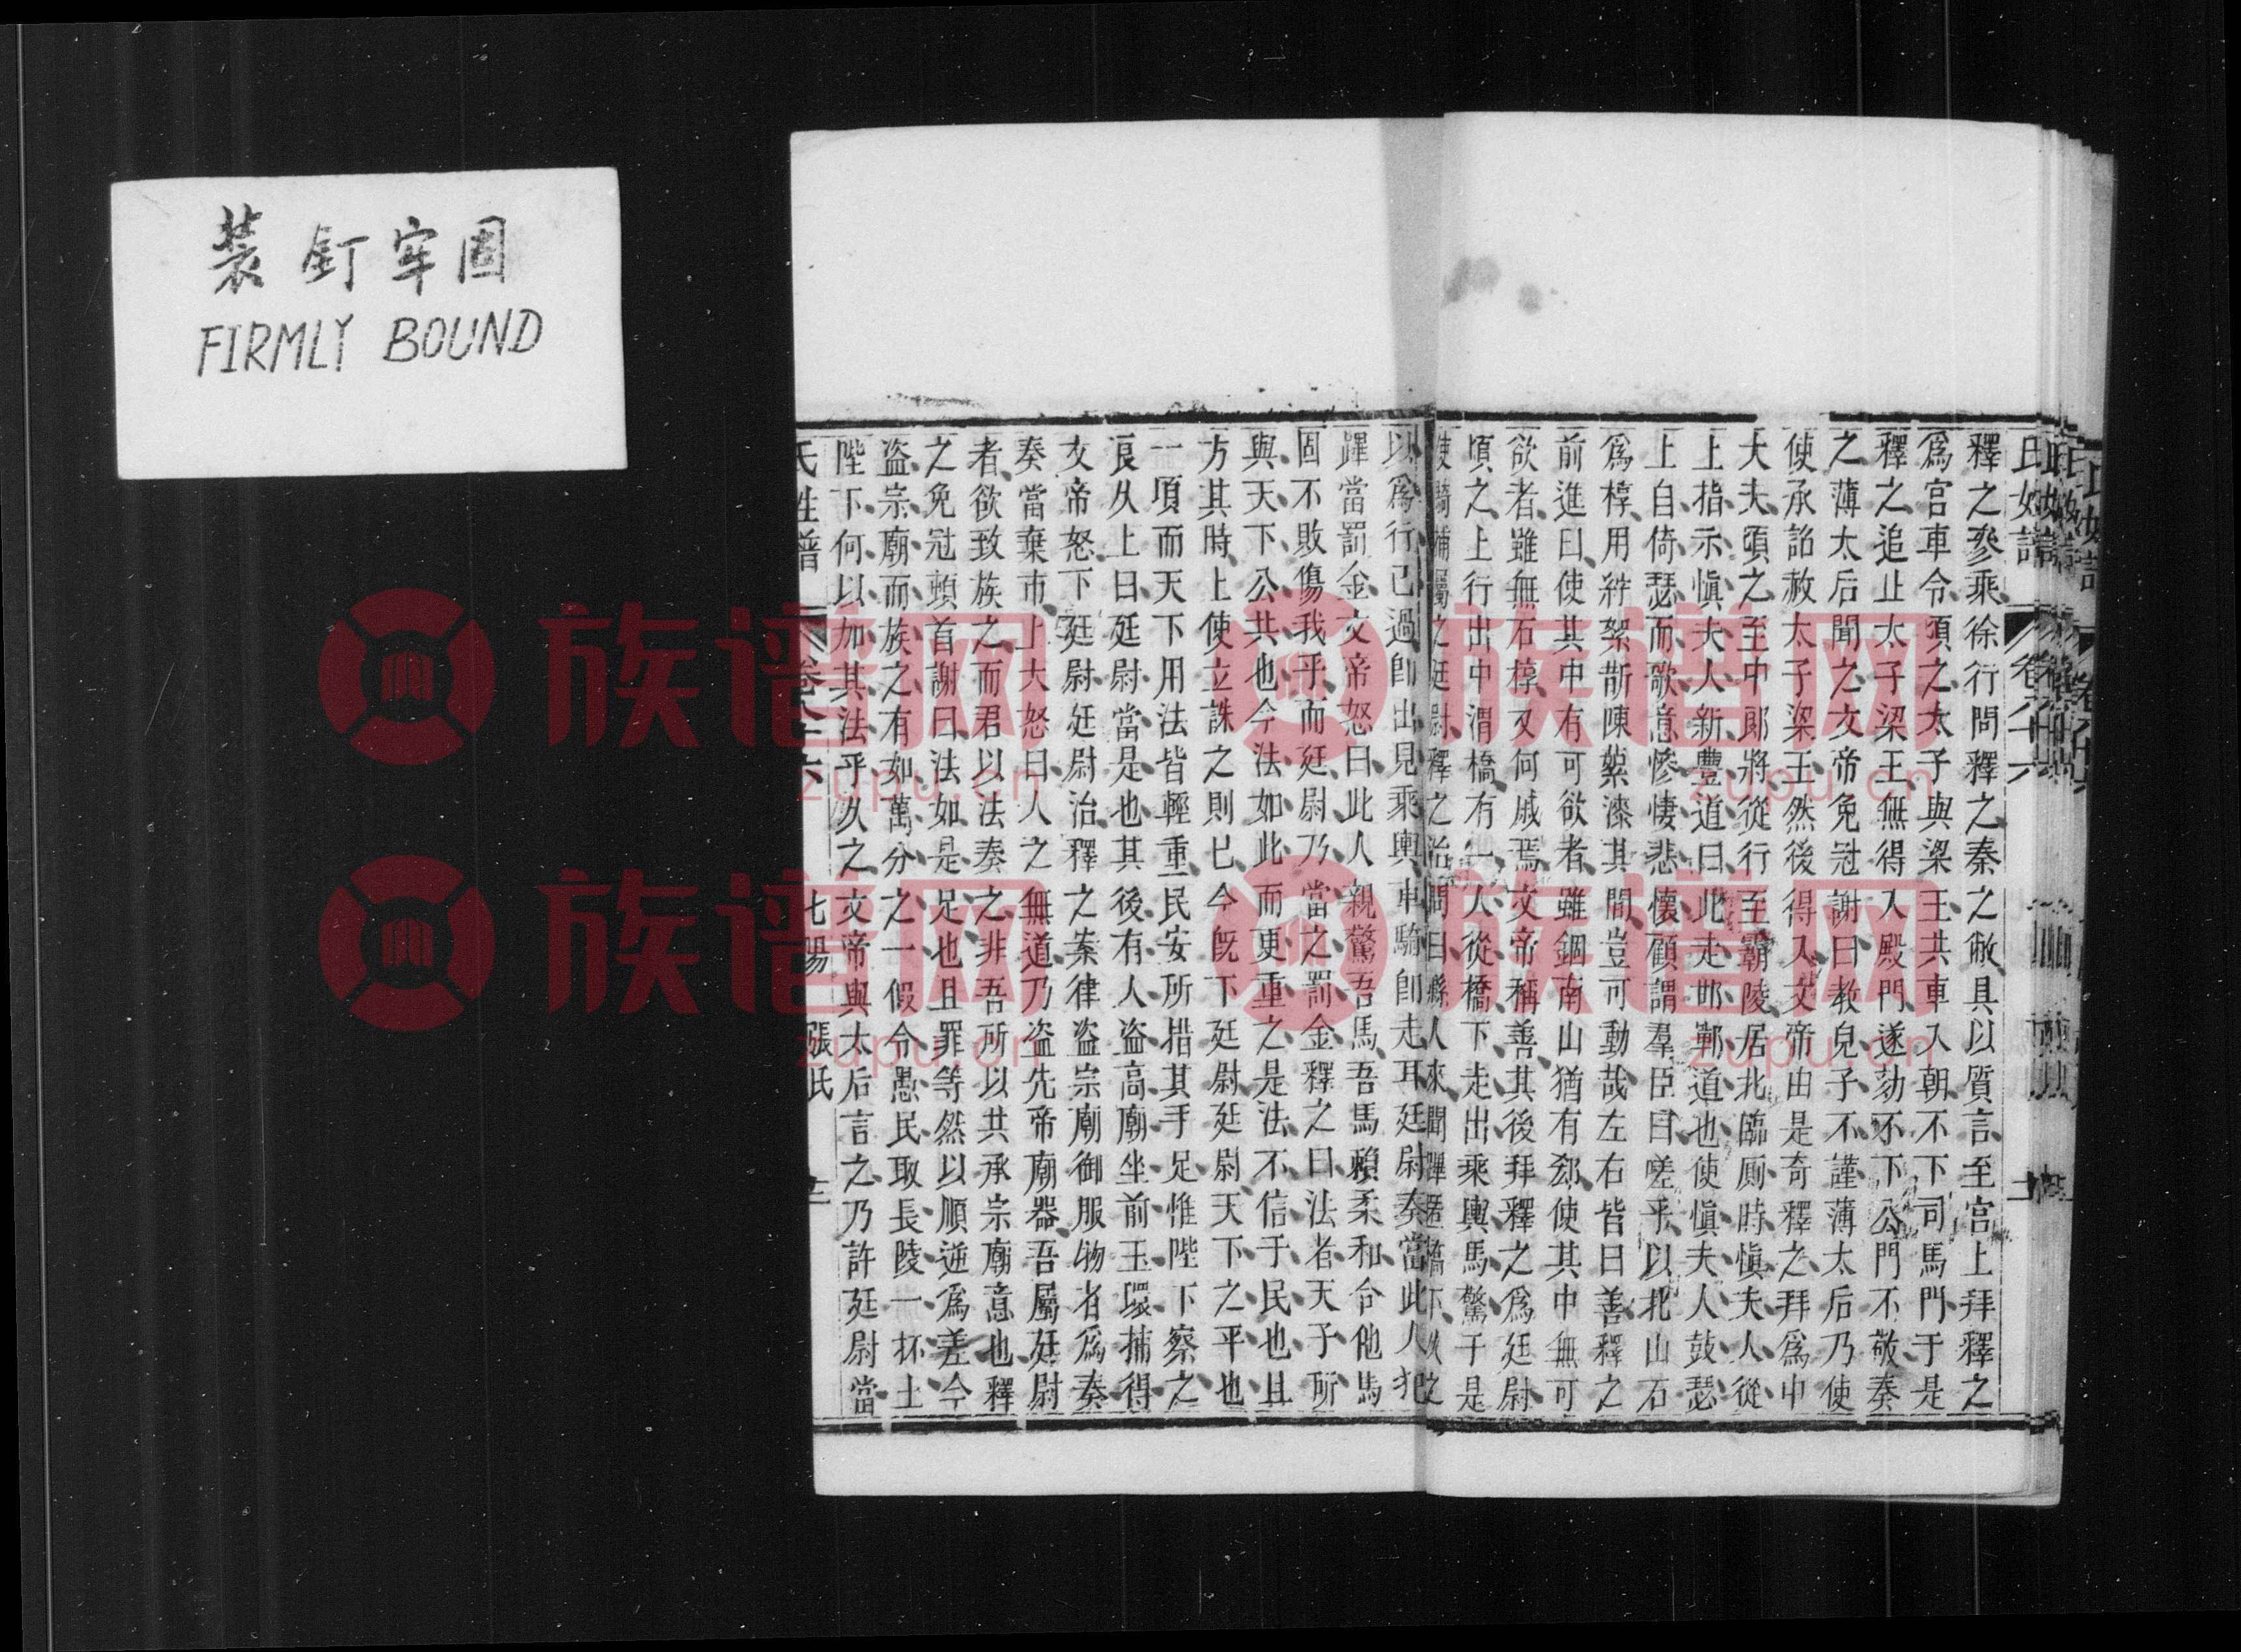 装釘牢固
FIRMLY BOUND
氏姓譜
卷六十六
釋之參乘徐行問釋之秦之敝具以質言至宮上拜釋之
爲宮車令頃之太子與梁王共車入朝不下司馬門于是
釋之追止太子梁王無得入殿門遂劾不下公門不敬奏
之薄太后聞之文帝免冠謝曰教兒子不謹薄太后乃使
使承詔赦太子梁王然後得入文帝由是奇釋之拜爲中
大夫頃之至中郎將從行至霸陵居北臨厠時愼夫人從
上指示愼夫人新豐道曰此走邯鄲道也使愼夫人鼓瑟
上自倚瑟而歌意慘悽悲懷顧謂羣臣曰嗟乎以北山石
爲椁用紵絮斮陳蘂漆其間豈可動哉左右皆曰善釋之
前進曰使其中有可欲者雖錮南山猶有郄使其中無可
欲者雖無石椁又何戚焉文帝稱善其後拜釋之爲廷尉
頃之上行出中渭橋有一人從橋下走出乘輿馬驚于是
使騎捕屬之廷尉釋之治問曰縣人來聞蹕匿橋下久之
以爲行已過卽出見乘輿車騎卽走耳廷尉奏當此人犯
蹕當罰金文帝怒曰此人親驚吾馬吾馬賴柔和令他馬
固不敗傷我乎而廷尉乃當之罰金釋之曰法者天子所
與天下公共也今法如此而更重之是法不信于民也且
方其時上使立誅之則已今旣下廷尉廷尉天下之平也
一項而天下用法皆輕重民安所措其手足惟陛下察之
良久上曰廷尉當是也其後有人盗高廟坐前玉環捕得
文帝怒下廷尉廷尉治釋之案律盗宗廟御服物者爲奏
奏當棄市上大怒曰人之無道乃盗先帝廟器吾屬廷尉
者欲致族之而君以法奏之非吾所以共承宗廟意也釋
之免冠頓首謝曰法如是足也且罪等然以順逆爲差今
盗宗廟而族之有如萬分之一假令愚民取長陵一杯土
陛下何以加其法乎久之文帝與太后言之乃許廷尉當
氏姓譜
卷六十六
七陽
張氏
族谱网
zupu.cn
族谱网
zupu.cn
族谱网
zupu.cn
族谱网
zupu.cn